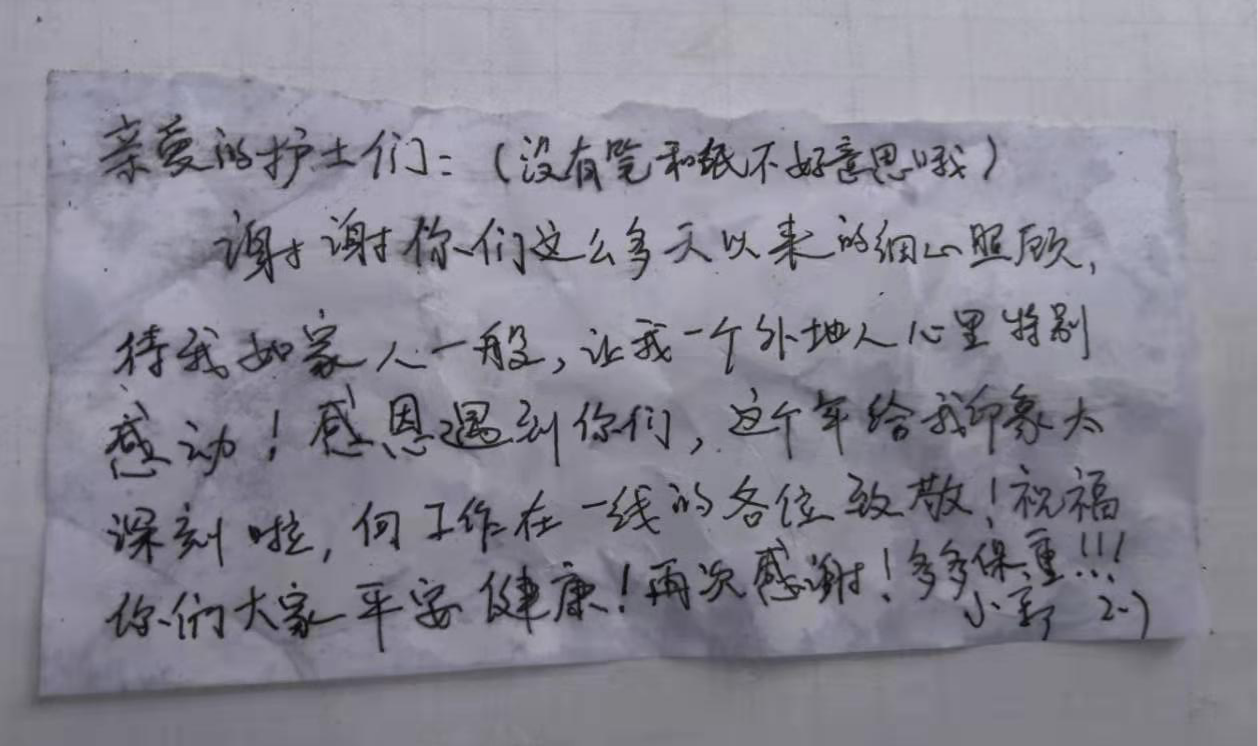 亲爱的护士们：（没有笔和纸不好意思哦）
谢谢你们这么多天以来的细心照顾，
待我如家人一般，让我一个外地人心里特别
感动！感恩遇到你们，这个年给我印象太
深刻啦，向工作在一线的各位致敬！祝福
你们大家平安健康！再次感谢！多多保重！！！
小 2.7